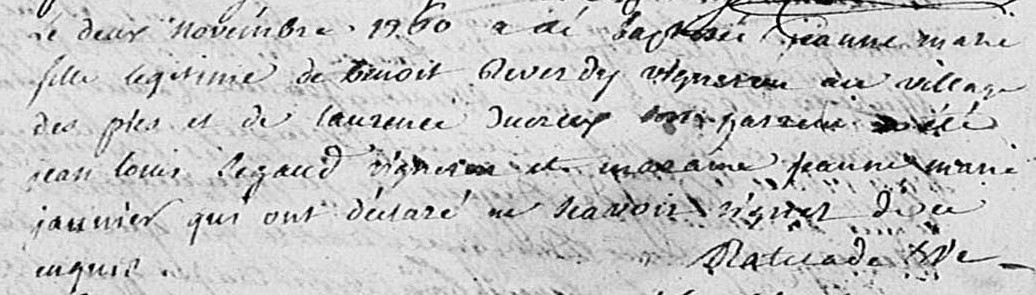 Le deux novembre 1760 a été baptisée jeanne marie
fille legitime de benoit Reverdy vigneron au village
des pies et de laurence ducreux son parrein a été
jean louis Segaud vigneron et maraine jeanne marie
jannier qui ont déclaré ne scavoir signer de ce
enquis.